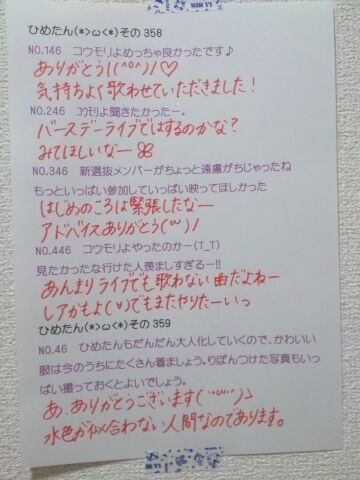 ひめたん(*>ω<*)その358
NO.146 コウモリよめっちゃ良かったです♪
ありがとう!(^o^)/♡
気持ちよく歌わせていただきました!
NO.246 コウモリよ聞きたかったー。
バースデーライブではするのかな?
みてほしいなー
NO.346 新選抜メンバーがちょっと遠慮がちじゃったね
もっといっぱい参加していっぱい映ってほしかった
はじめのころは緊張したなー
アドバイスありがとう(´ω`)/
NO.446 コウモリよやったのかー(T_T)
見たかったな行けた人羨ましすぎるー!!
あんまりライブでも歌わない曲だよねー
レアかもよ(∀)でもまたやりたーいっ
ひめたん(*>ω<*)その359
NO.46 ひめたんもだんだん大人化していくので、かわいい
服は今のうちにたくさん着ましょう。りぼんつけた写真もいっ
ぱい撮っておくとよいでしょう。
あ、ありがとうございます(´・ω・`)
水色が似合わない人間なのであります。